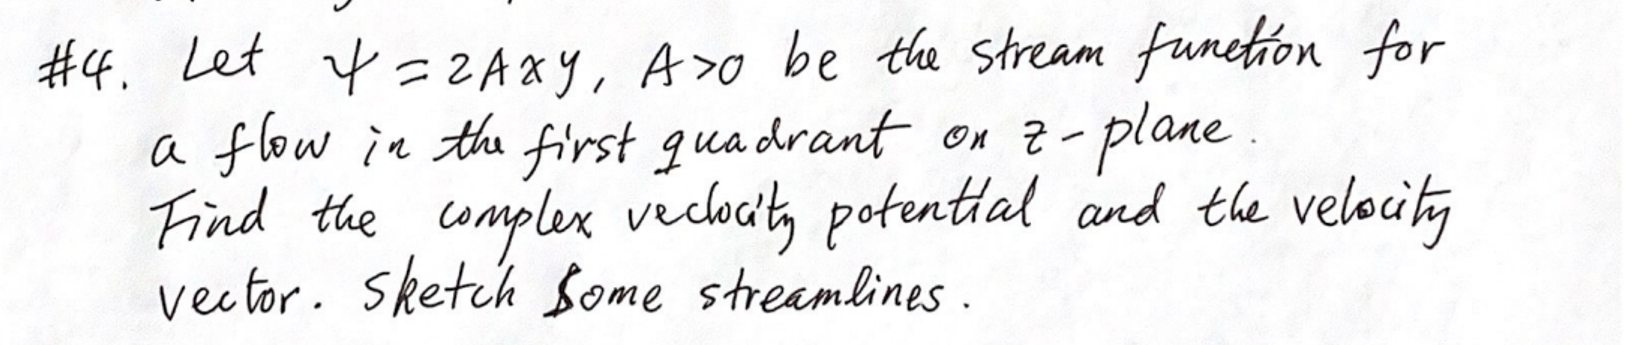 #4. Let ψ = 2Axy, A>0 be the stream function for
a flow in the first quadrant on z-plane.
Find the complex veclocity potential and the velocity
vector. Sketch Some streamlines.